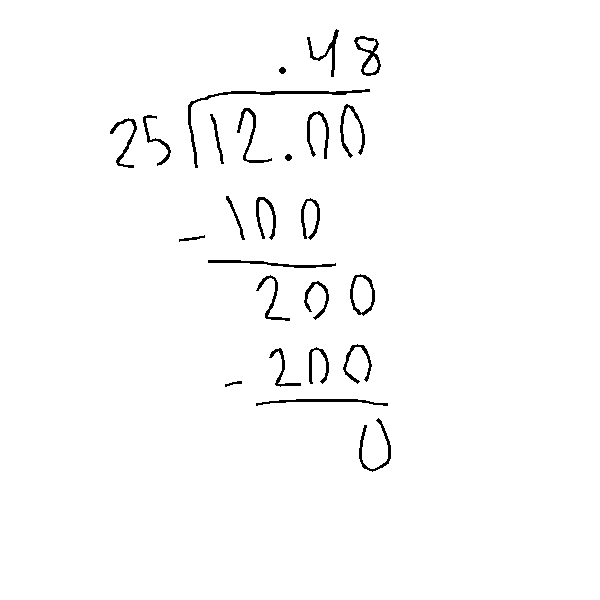 .48
25 12.00
- 100
200
- 200
0